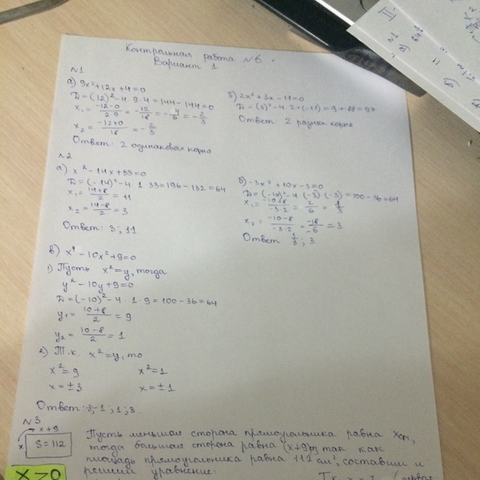 Контрольная работа №6.
Вариант 1
№1
а) 9x²+12x+4=0
Д=(12)²-4·9·4=144-144=0
x₁=(-12-0)/(2·9)=-12/18=-6/9=-2/3
x₂=(-12+0)/18=-2/3
Ответ: 2 одинаковых корня
б) 2x²+3x-11=0
Д=(3)²-4·2·(-11)=9+88=97
Ответ: 2 разных корня
№2
а) x²-14x+33=0
Д=(-14)²-4·1·33=196-132=64
x₁=(14+8)/2=11
x₂=(14-8)/2=3
Ответ: 3; 11
б) -3x²+10x-3=0
Д=(-10)²-4·(-3)·(-3)=100-36=64
x₁=(-10+8)/(-3·2)=2/6=1/3
x₂=(-10-8)/(-3·2)=-18/-6=3
Ответ 1/3; 3
в) x⁴-10x²+9=0
1) Пусть x²=y, тогда
y²-10y+9=0
Д=(-10)²-4·1·9=100-36=64
y₁=(10+8)/2=9
y₂=(10-8)/2=1
2) Т.к. x²=y, то
x²=9 x²=1
x=±3 x=±1
Ответ: -3; -1; 1; 3.
№3
x+9
x S=112
Пусть меньшая сторона прямоугольника равна x см,
тогда большая сторона равна (x+9) так как
площадь прямоугольника равна 112 см², составим и
решим уравнение:
x>0